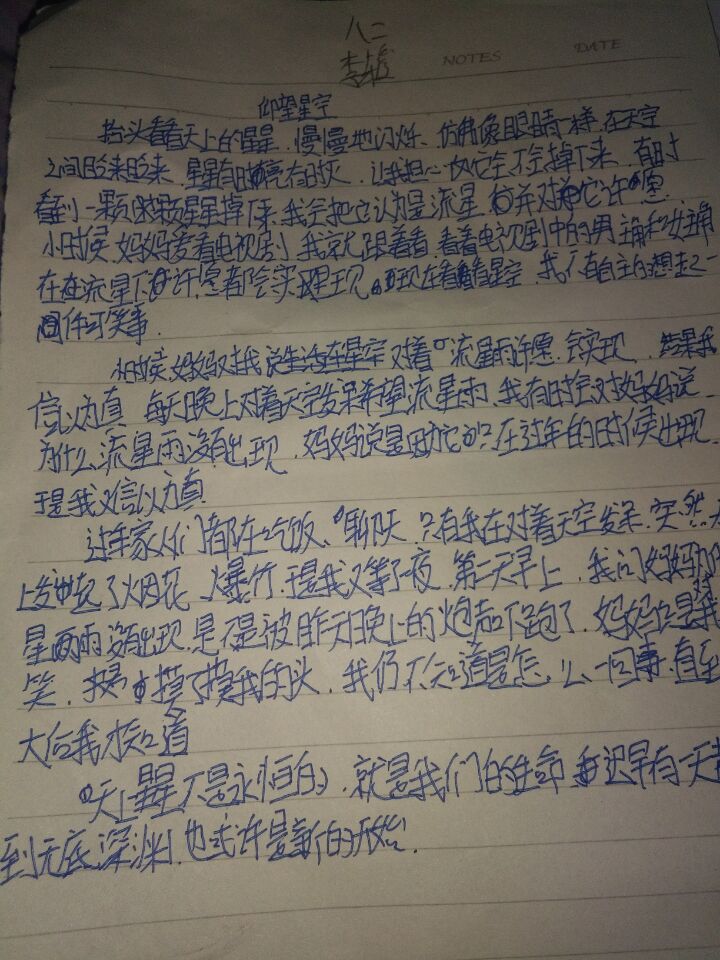 八二
李
NOTES DATE
仰望星空
抬头看看天上的星星，慢慢地闪烁、仿佛像眼睛一样，在天空
之间眨来眨来，星星有时亮有时灭，让我担心它会不会掉下来，有时
看到一颗颗星星掉下来，我会把它认为是流星，并对着它许愿
小时候，妈妈爱看电视剧，我就跟着看，看着电视剧中的男主角和女主角
在流星下许愿都会实现。现在看着星空，我不由自主的想起了一
件可笑事。
小时候妈妈对我说生活在星空对着流星雨许愿，会实现，结果我
信以为真，每天晚上对着天空发呆希望流星雨，我有时会对妈妈说
为什么流星雨没有出现，妈妈说是因为它们在过年的时候出现，
于是我又信以为真
过年家人们都在吃饭、聊天，只有我在对着天空发呆，突然，
上发起了烟花，爆竹，于是我又等了一夜，第二天早上，我问妈妈
星雨没有出现，是不是被昨天晚上的炮声吓跑了，妈妈总是
笑，摸了摸我的头，我仍不知道是怎么一回事，直至
大后我才知道
天上星星不是永恒的，就是我们的生命，迟早有一天
到无底深渊，也或许是新的开始。